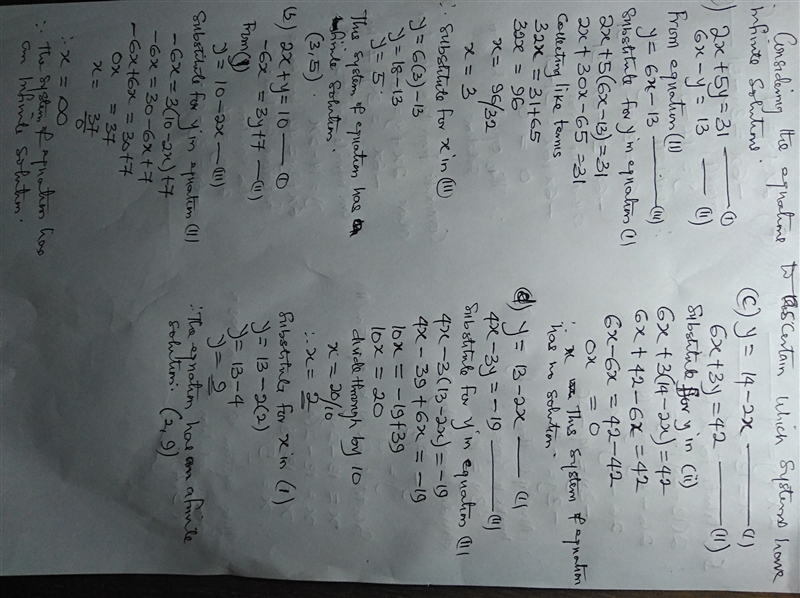 Considering the equations to ascertain which systems have
infinite solutions.
) 2x + 5y = 31 —— (I)
6x - y = 13 —— (II)
From equation (II)
y = 6x - 13 —— (III)
Substitute for y in equation (I)
2x + 5(6x - 13) = 31
2x + 30x - 65 = 31
Collecting like terms
32x = 31 + 65
32x = 96
x = 96/32
x = 3
∴ Substitute for x in (III)
y = 6(3) - 13
y = 18 - 13
y = 5
The system of equation has
finite solution.
(3, 5)
(b) 2x + y = 10 —— (I)
-6x = 3y + 7 —— (II)
From (I)
y = 10 - 2x —— (III)
Substitute for y in equation (II)
-6x = 3(10 - 2x) + 7
-6x = 30 - 6x + 7
-6x + 6x = 30 + 7
0x = 37
x = 37/0
∴ x = ∞
∴ The system of equation has
an infinite solution.
(c) y = 14 - 2x —— (I)
6x + 3y = 42 —— (II)
Substitute for y in (ii)
6x + 3(14 - 2x) = 42
6x + 42 - 6x = 42
6x - 6x = 42 - 42
0x = 0
∴ x This system of equation
has no solution.
(d) y = 13 - 2x —— (I)
4x - 3y = -19 —— (II)
Substitute for y in equation (II)
4x - 3(13 - 2x) = -19
4x - 39 + 6x = -19
10x = -19 + 39
10x = 20
divide through by 10
x = 20/10
∴ x = 2
Substitute for x in (I)
y = 13 - 2(2)
y = 13 - 4
y = 9
∴ The equation has a finite
solution: (2, 9)